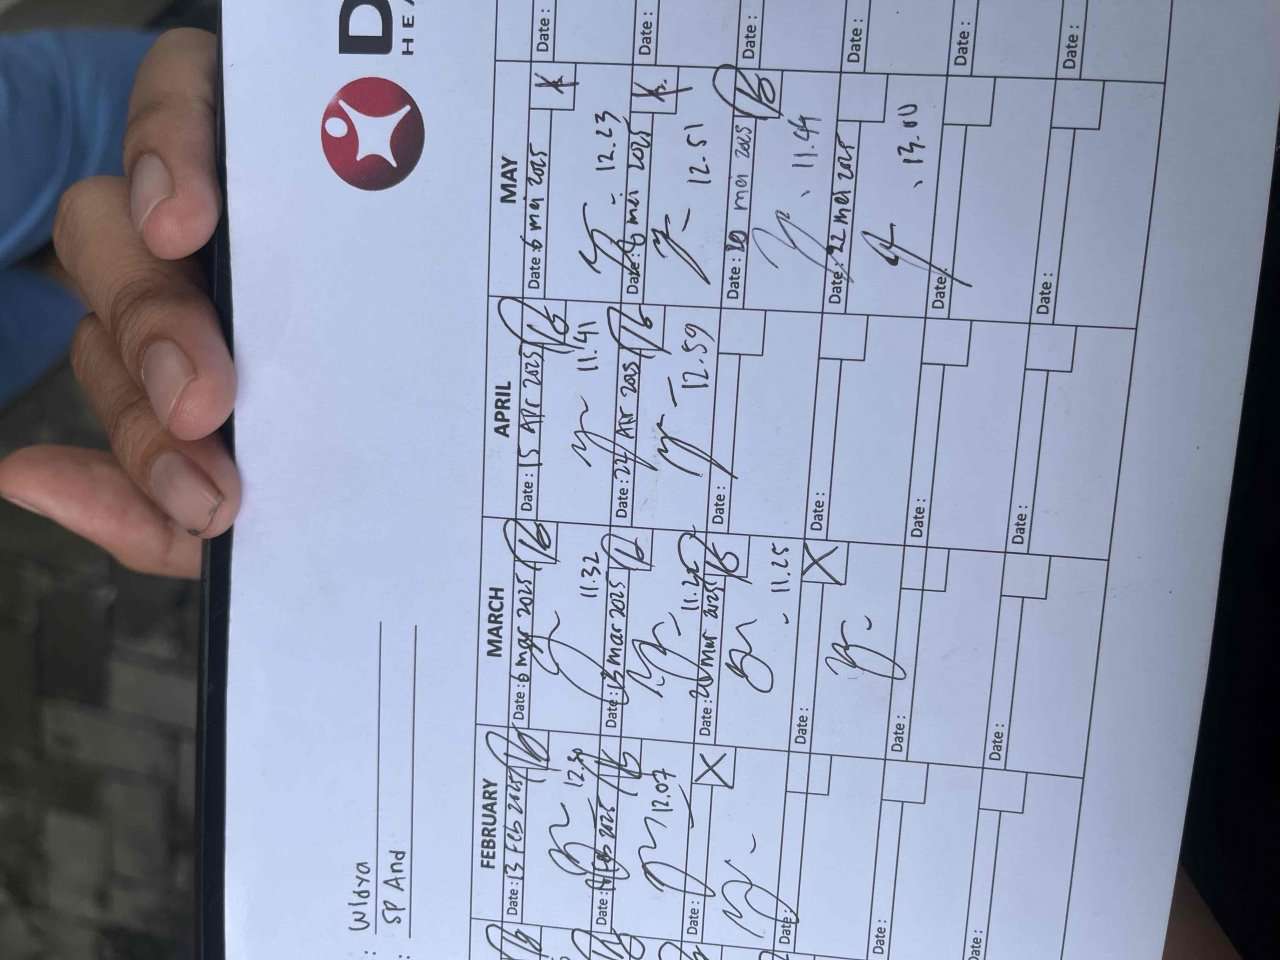 D
HEA
: Widya
: SP And
FEBRUARY
MARCH
APRIL
MAY
Date : 13 Feb 2025
12.50
Date : Feb 2025
12.07
Date :
Date :
Date :
Date :
Date : 6 mar 2025
11.32
Date : 13 mar 2025
Date : mar 2025
11.25
Date :
Date :
Date :
Date : 15 Apr 2025
11.41
Date : 22 Apr 2025
12.59
Date :
Date :
Date :
Date :
Date : 6 mei 2025
12.23
Date : mei 2025
12.51
Date : 20 mei 2025
11.44
Date : 22 mei 2025
13.00
Date :
Date :
Date :
Date :
Date :
Date :
Date :
Date :